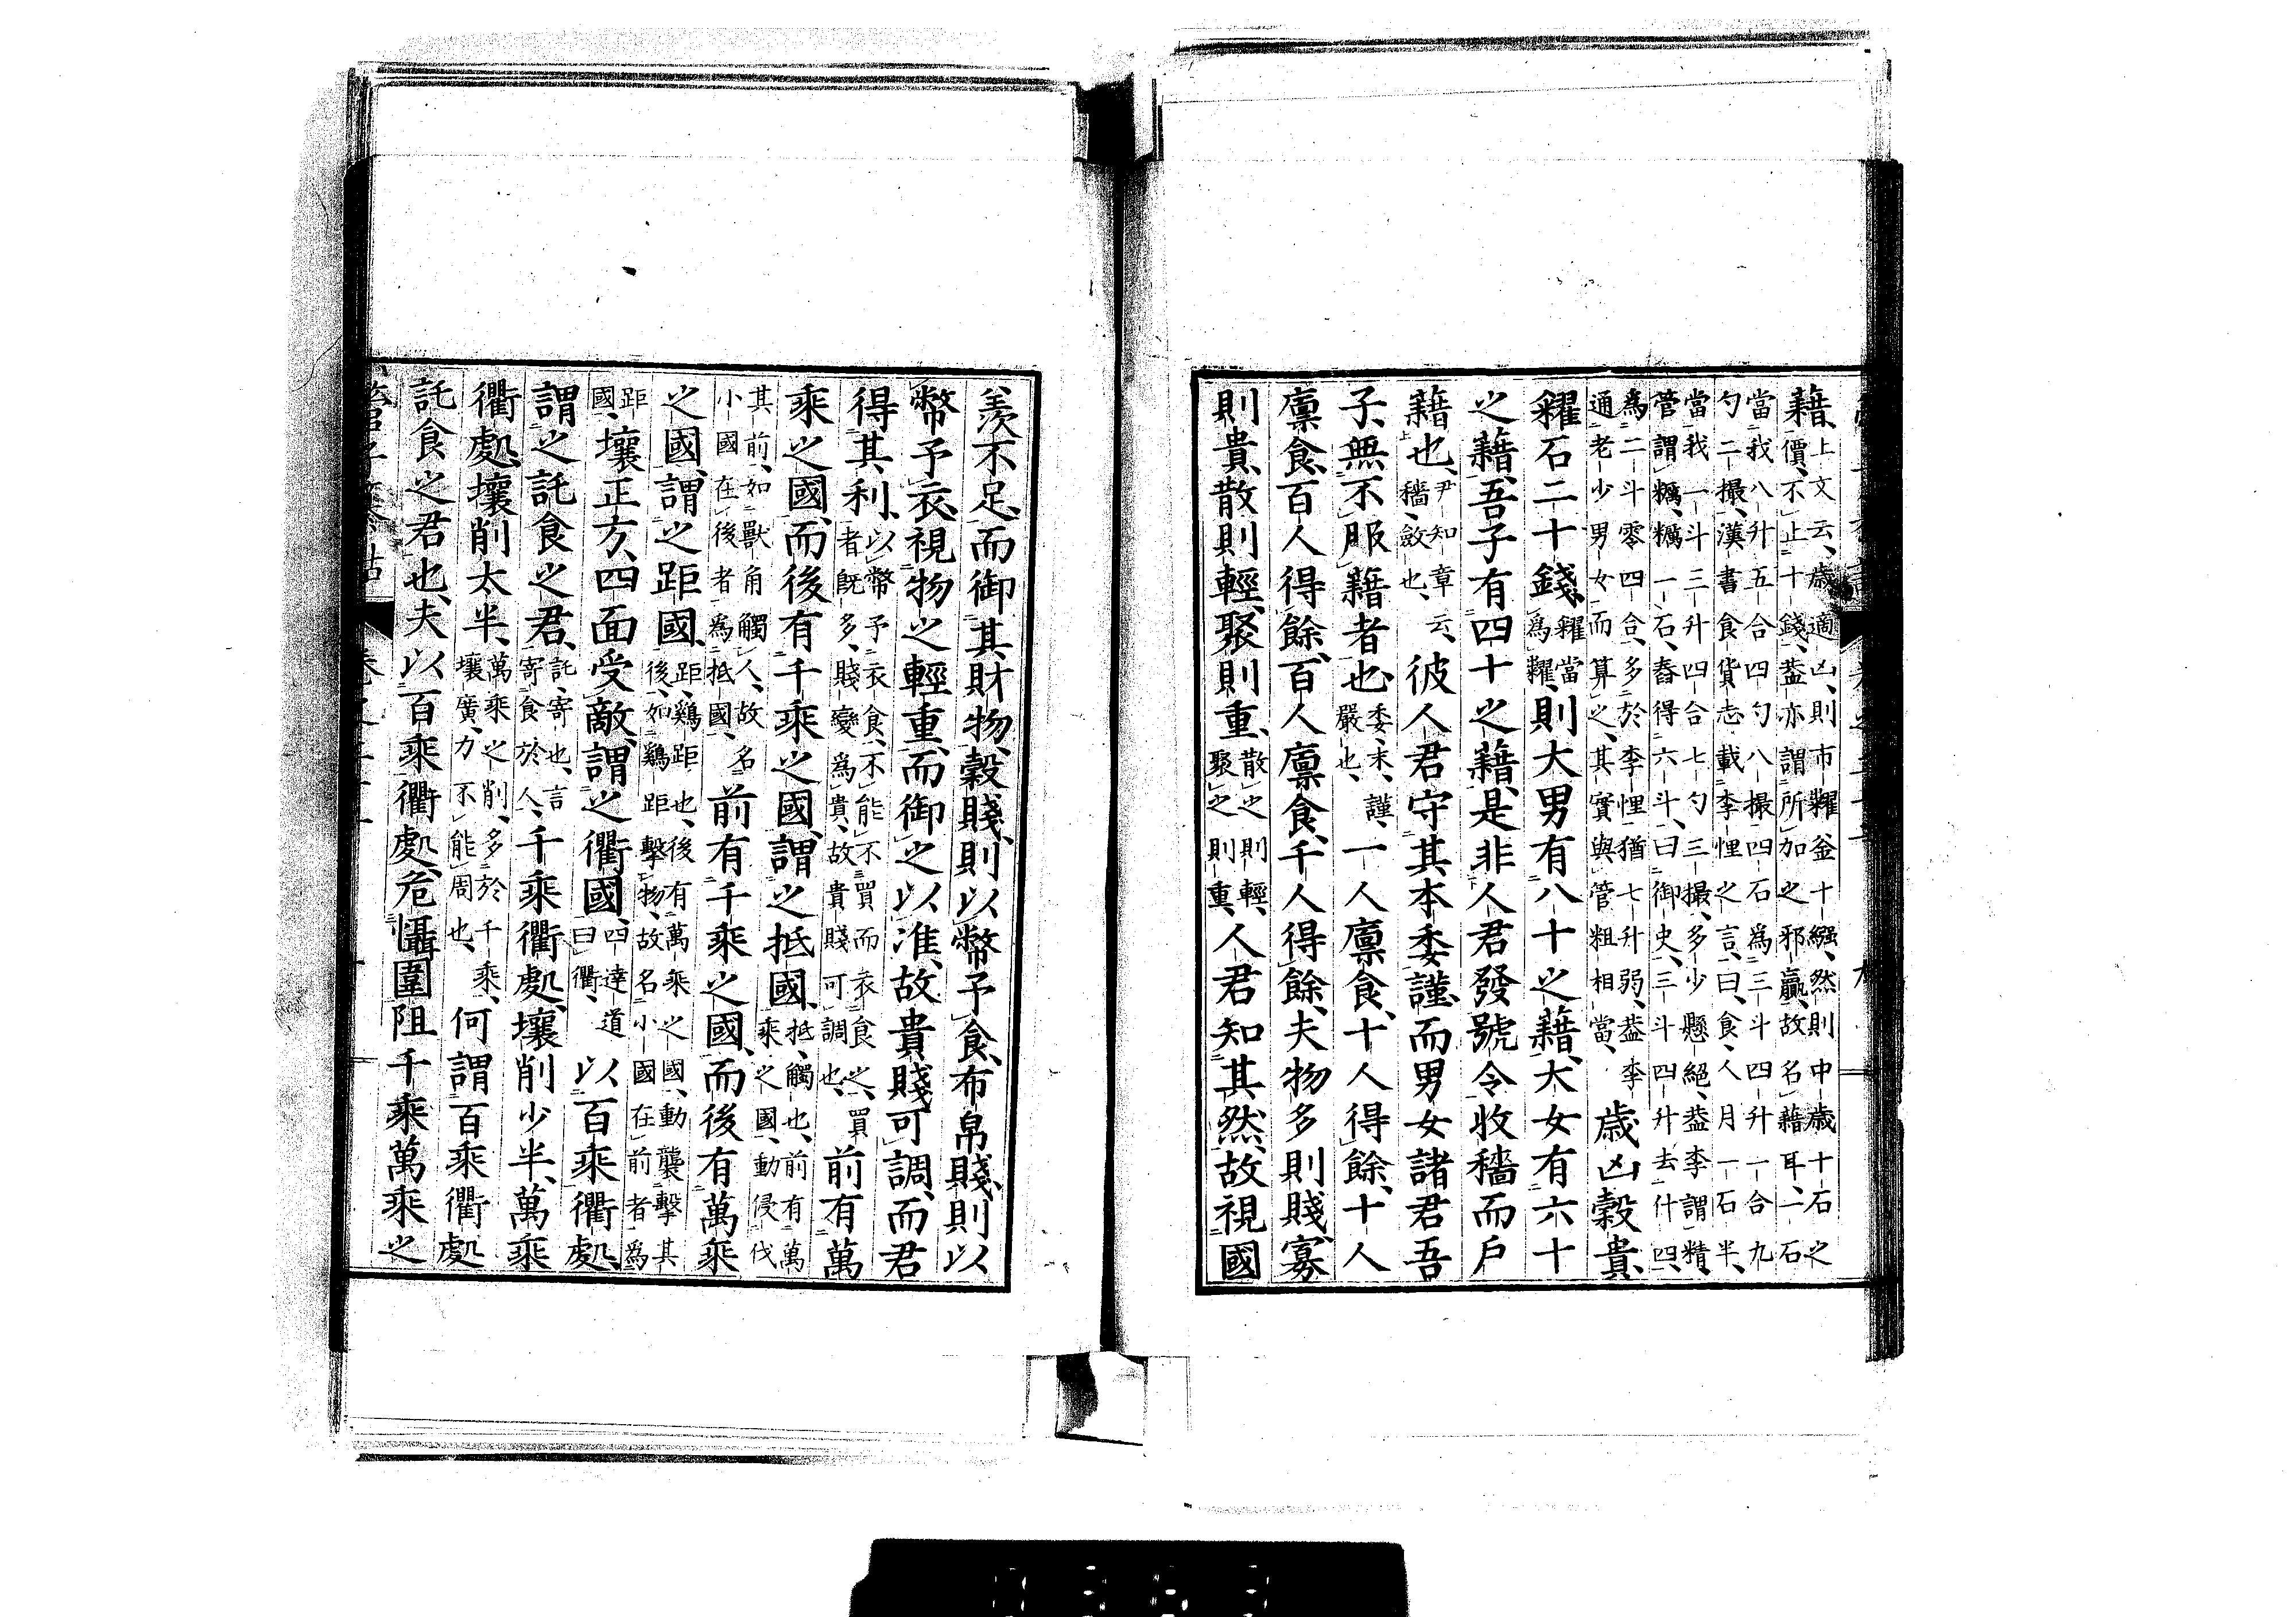 藉、上文云、歲適凶、則市糶釜十繦、然則中歲十石之
價、不止十錢、蓋亦謂所加之邪贏、故名藉耳、二石
當我八升五合四勺八撮四石爲三斗四升一合九
勺二撮、漢書食貨志載李悝之言曰、食、人月一石半、
當我一斗三升四合七勺三撮、多少懸絕、蓋李謂精、
管謂糲、糲一石、舂得六斗、曰御史、三斗四升去什四、
爲二斗零四合、多於李悝猶七升弱、蓋李
通老少男女而算之、其實與管粗相當、歲凶穀貴、
糴石二十錢、糴當爲糶、則大男有八十之藉、大女有六十
之藉、吾子有四十之藉、是非人君發號令收穡而戶
藉也、尹知章云、穡、斂也、彼人君守其本委謹、而男女諸君吾
子、無不服藉者也、委、末、謹、嚴也、一人廩食、十人得餘、十人
廩食、百人得餘、百人廩食、千人得餘、夫物多則賤、寡
則貴、散則輕、聚則重、散之則輕、聚之則重、人君知其然、故視國
羨不足、而御其財物、穀賤、則以幣予食、布帛賤、則以
幣予衣、視物之輕重、而御之以准、故貴賤可調、而君
得其利、以幣予衣食、不能不買而衣食之、買者既多、賤變爲貴、故貴賤可調也、前有萬
乘之國、而後有千乘之國、謂之抵國、抵、觸也、前有萬乘之國、動侵伐
其前、如獸角觸人、故名小國在後者爲抵國、前有千乘之國、而後有萬乘
之國、謂之距國、距、鷄距也、後有萬乘之國、動襲擊其後、如鷄距擊物、故名小國在前者爲
距國、壤正方、四面受敵、謂之衢國、四達道曰衢、以百乘衢處、
謂之託食之君、託、寄也、言寄食於人、千乘衢處、壤削少半、萬乘
衢處、壤削太半、萬乘之削、多於千乘、壤廣、力不能周也、何謂百乘衢處
託食之君也、夫以百乘衢處、危懾圍阻千乘萬乘之